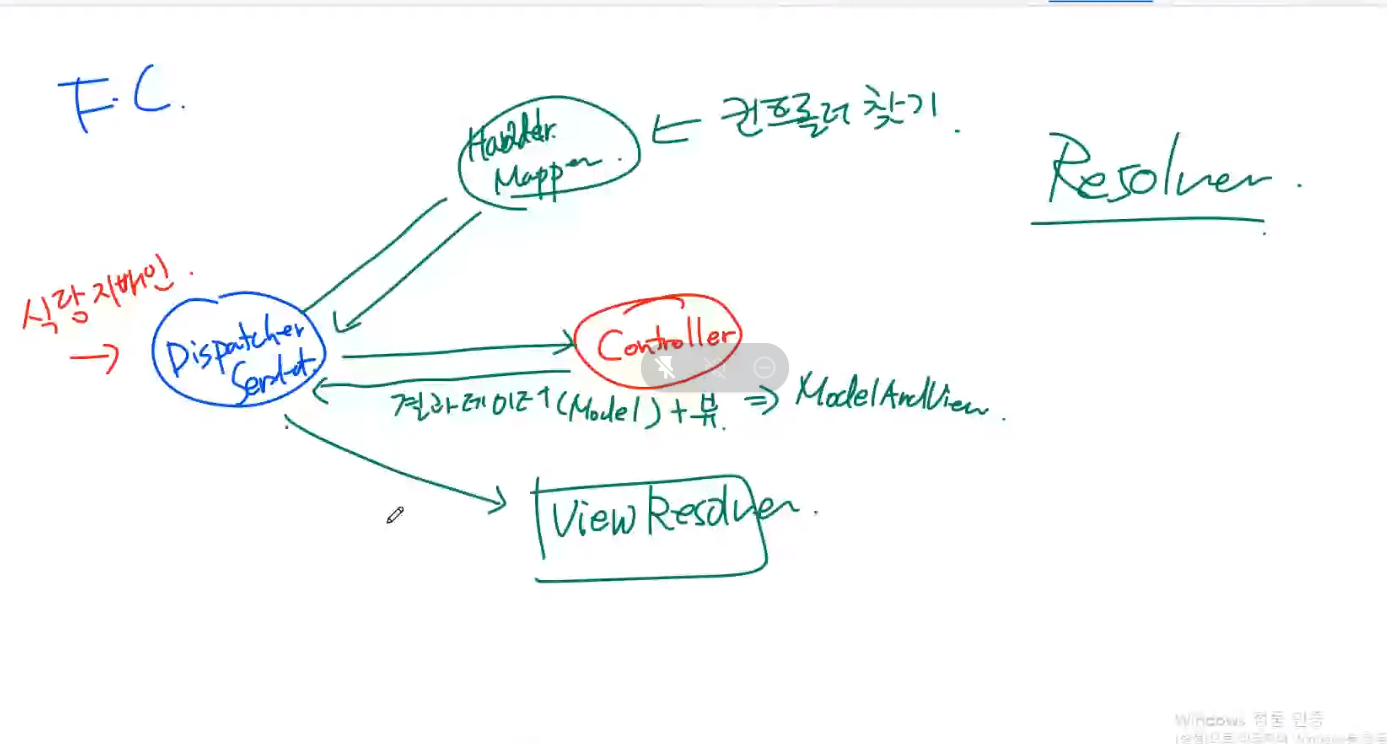 F.C.
Handler
Mapper.
← 컨트롤러 찾기.
Resolver.
식당 지배인.
→
Dispatcher
Servlet.
Controller
결과 데이터(Model) + 뷰. ⇒ ModelAndView.
View Resolver.
Windows 정품 인증